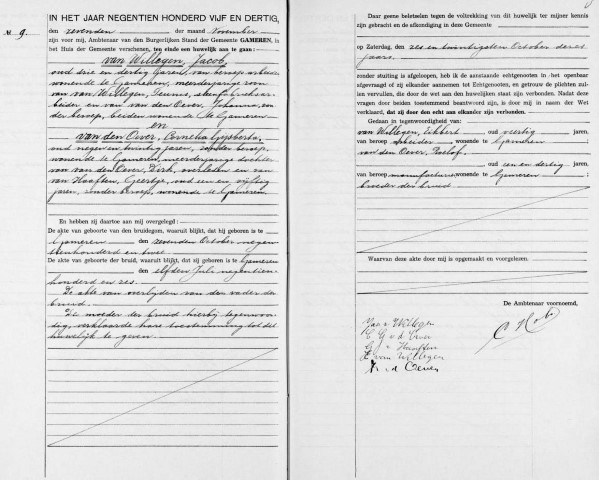 IN HET JAAR NEGENTIEN HONDERD VIJF EN DERTIG,
№ 9.
den zevenden der maand November
zijn voor mij, Ambtenaar van den Burgerlijken Stand der Gemeente GAMEREN, in
het Huis der Gemeente verschenen, ten einde een huwelijk aan te gaan:
van Willegen, Jacob,
oud drie en dertig jaren, van beroep arbeider
wonende te Gameren, meerderjarige zoon
van van Willegen, Teunis, steenfabrieksar-
beider en van van den Oever, Johanna, zon-
der beroep, beiden wonende te Gameren
en
van den Oever, Cornelia Gijsberta,
oud negen en twintig jaren, zonder beroep,
wonende te Gameren, meerderjarige dochter
van van den Oever, Dirk, overleden en van
van Haaften, Geertje, oud een en vijftig
jaren, zonder beroep, wonende te Gameren
En hebben zij daartoe aan mij overgelegd:
De akte van geboorte des bruidegoms, waaruit blijkt, dat hij geboren is te
Gameren den zevenden October negen-
tienhonderd en twee.
De akte van geboorte der bruid, waaruit blijkt, dat zij geboren is te Gameren
den elfden Juli negentien-
honderd en zes.
De akte van overlijden van den vader der
bruid.
De moeder der bruid hierbij tegenwoor-
dig, verklaarde hare toestemming tot dit
huwelijk te geven.
Daar geene beletselen tegen de voltrekking van dit huwelijk ter mijner kennis
zijn gebracht en de afkondiging in deze Gemeente
op Zaterdag, den zes en twintigsten October dezes
jaars.
zonder stuiting is afgeloopen, heb ik de aanstaande echtgenooten in het openbaar
afgevraagd of zij elkander aannemen tot Echtgenooten, en getrouw de plichten zul-
len vervullen, die door de wet aan den huwelijken staat zijn verbonden. Nadat deze
vragen door beiden toestemmend beantwoord zijn, is door mij in naam der Wet
verklaard, dat zij door den echt aan elkander zijn verbonden.
Gedaan in tegenwoordigheid van:
van Willegen, oud veertig jaren,
van beroep arbeider wonende te Gameren
van den Oever, Roelof,
oud een en dertig jaren,
van beroep manufacturier wonende te Gameren
broeder der bruid
Waarvan deze akte door mij is opgemaakt en voorgelezen.
De Ambtenaar voornoemd,
van Willegen
C G v d Oever
G v Haaften
van Willegen
v d Oever